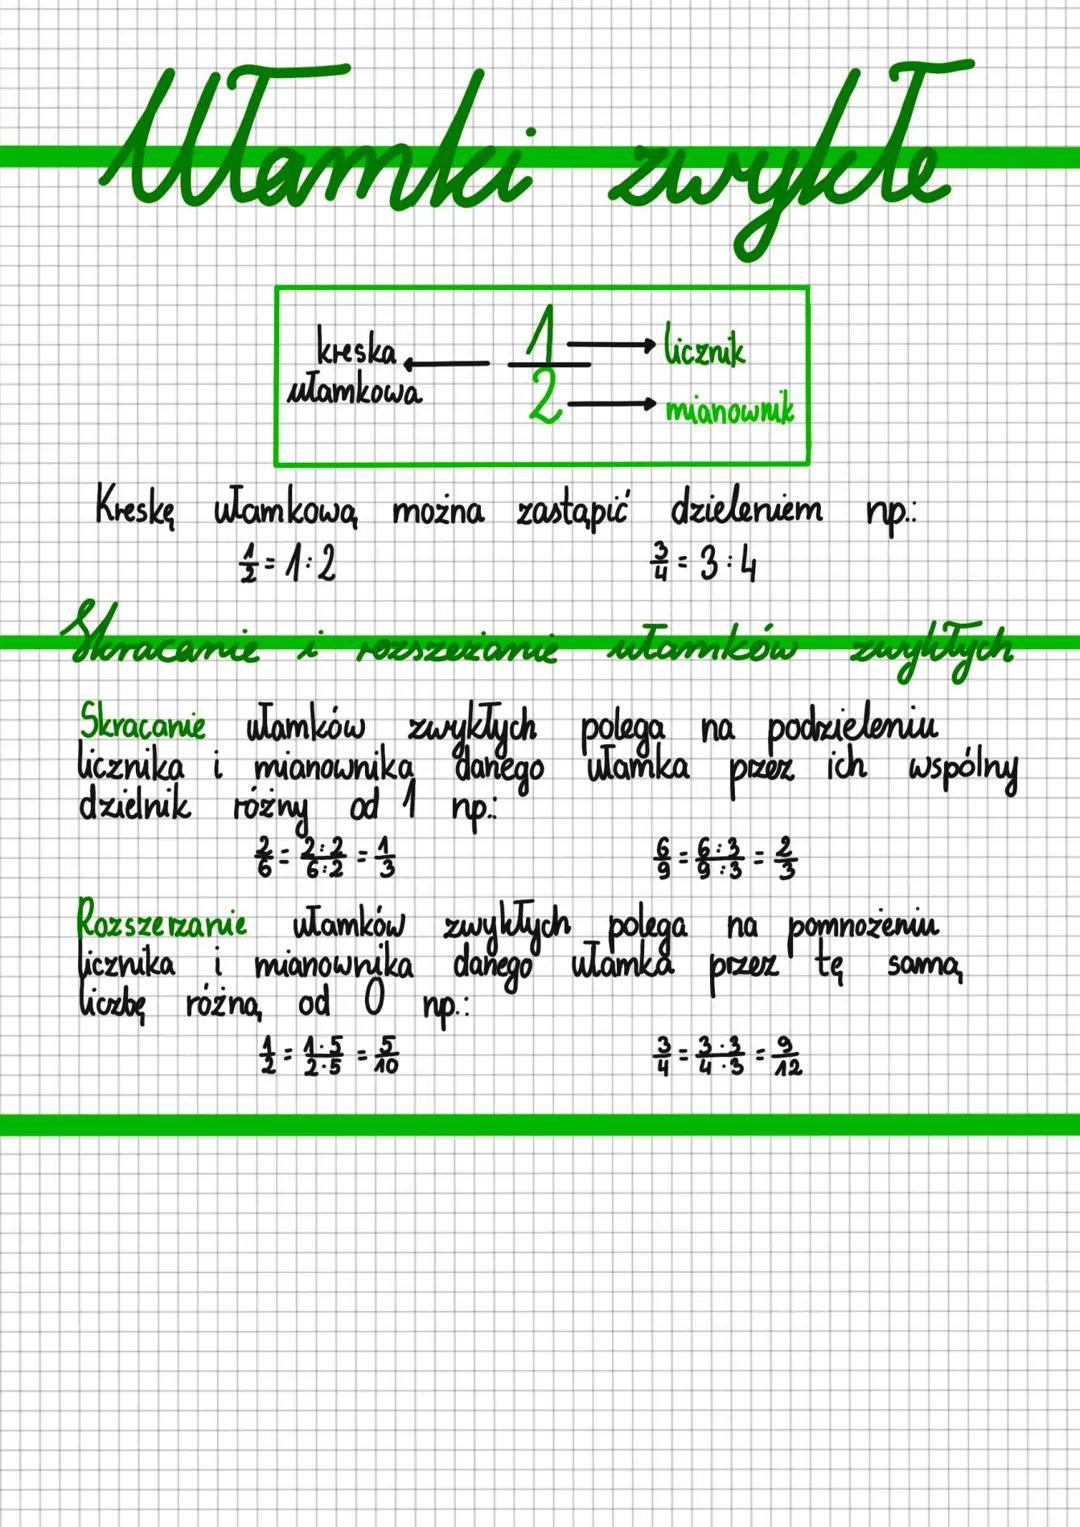 Ułamki zwykłe
kreska
ułamkowa
1
2
licznik
mianownik
Kreskę ułamkową można zastąpić dzieleniem np.:
1/2 = 1:2 3/4 = 3:4
Skracanie i rozszerzanie ułamków zwykłych
Skracanie ułamków zwykłych polega na podzieleniu
licznika i mianownika danego ułamka przez ich wspólny
dzielnik różny od 1 np.:
2/6 = 2:2/6:2 = 1/3 6/9 = 6:3/9:3 = 2/3
Rozszerzanie ułamków zwykłych polega na pomnożeniu
licznika i mianownika danego ułamka przez tę samą
liczbę różną od 0 np.:
1/2 = 1·5/2·5 = 5/10 3/4 = 3·3/4·3 = 9/12